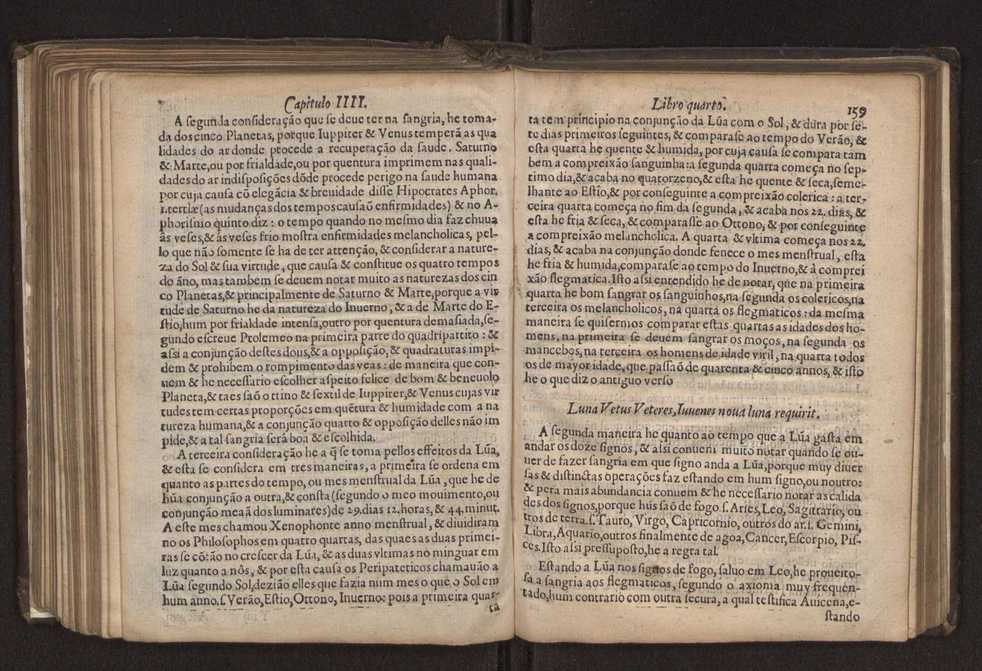 Capitulo IIII.
A segunda consideração que se deue ter na sangria, he toma-
da dos cinco Planetas, porque Iuppiter & Venus temperã as qua
lidades do ar donde procede a recuperação da saude. Saturno
& Marte, ou por frialdade, ou por quentura imprimem nas quali-
dades do ar indisposições dõde procede perigo na saude humana
por cuja causa cõ elegãcia & breuidade disse Hipocrates Aphor.
1. tertiæ (as mudanças dos tempos causaõ enfirmidades) & no A-
phorismo quinto diz: o tempo quando no mesmo dia faz chuua
âs veses, & âs veses frio mostra enfirmidades melancholicas, pel-
lo que não somente se ha de ter attenção, & considerar a nature-
za do Sol & sua virtude, que causa & constitue os quatro tempos
do ãno, mas tambem se deuem notar muito as naturezas dos cin
co Planetas, & principalmente de Saturno & Marte, porque a vir
tude de Saturno he da natureza do Inuerno, & a de Marte do E-
stio, hum por frialdade intensa, outro por quentura demasiada, se-
gundo escreue Ptolemeo na primeira parte do quadripartito: &
assi a conjunção destes dous, & a opposição, & quadraturas impi-
dem & prohibem o rompimento das veas: de maneira que con-
uem & he necessario escolher aspeito felice de bom & beneuolo
Planeta, & taes saõ o trino & sextil de Iuppiter, & Venus cujas vir
tudes tem certas proporções em quẽtura & humidade com a na
tureza humana, & a conjunção quarto & opposição delles não im
pide, & a tal sangria será boa & escolhida.
A terceira consideração he a q̃ se toma pellos effeitos da Lũa,
& esta se considera em tres maneiras, a primeira se ordena em
quanto as partes do tempo, ou mes menstrual da Lũa, que he de
hũa conjunção a outra, & consta (segundo o meo mouimento, ou
conjunção meaã dos luminares) de 29. dias 12. horas, & 44. minut.
A este mes chamou Xenophonte anno menstrual, & diuidiram
no os Philosophos em quatro quartas, das quaes as duas primei-
ras se cõtaõ no crescer da Lũa, & as duas vltimas no minguar em
luz quanto a nôs, & por esta causa os Peripateticos chamauão a
Lũa segundo Sol, dezião elles que fazia num mes o que o Sol em
hum anno. s. Verão, Estio, Ottono, Inuerno: pois a primeira quar-
ta
Libro quarto. 159
ta tem principio na conjunção da Lũa com o Sol, & dura por se-
te dias primeiros seguintes, & comparase ao tempo do Verão, &
esta quarta he quente & humida, por cuja causa se compara tam
bem a compreixão sanguinha: a segunda quarta começa no sep-
timo dia, & acaba no quatorzeno, & esta he quente & seca, seme-
lhante ao Estio, & por conseguinte a compreixão colerica: a ter-
ceira quarta começa no fim da segunda, & acaba nos 22. dias, &
esta he fria & seca, & comparasse ao Ottono, & por conseguinte
a compreixão melancholica. A quarta & vltima começa nos 22.
dias, & acaba na conjunção donde fenece o mes menstrual, esta
he fria & humida, comparase ao tempo do Inuerno, & à comprei
xão flegmatica. Isto assi entendido he de notar, que na primeira
quarta he bom sangrar os sanguinhos, na segunda os colericos, na
terceira os melancholicos, na quarta os flegmaticos: da mesma
maneira se quisermos comparar estas quartas as idades dos ho-
mens, na primeira se deuem sangrar os moços, na segunda os
mancebos, na terceira os homens de idade viril, na quarta todos
os de mayor idade, que passaõ de quarenta & cinco annos, & isto
he o que diz o antiguo verso
Luna Vetus Veteres, Iuuenes noua luna requirit.
A segunda maneira he quanto ao tempo que a Lũa gasta em
andar os doze signos, & assi conuem muito notar quando se ou-
uer de fazer sangria em que signo anda a Lũa, porque muy diuer
sas & distinctas operações faz estando em hum signo, ou noutro:
& pera mais abundancia conuem & he necessario notar as calida
des dos signos, porque hũs saõ de fogo. s. Aries, Leo, Sagittario, ou
tros de terra. s. Tauro, Virgo, Capricornio, outros do ar. s. Gemini,
Libra, Aquario, outros finalmente de agoa, Cancer, Escorpio, Pis-
ces. Isto assi pressuposto, he a regra tal.
Estando a Lũa nos signos de fogo, saluo em Leo, he proueito-
sa a sangria aos flegmaticos, segundo o axioma muy frequen-
tado, hum contrario com outro se cura, a qual testifica Auicena, e-
stando